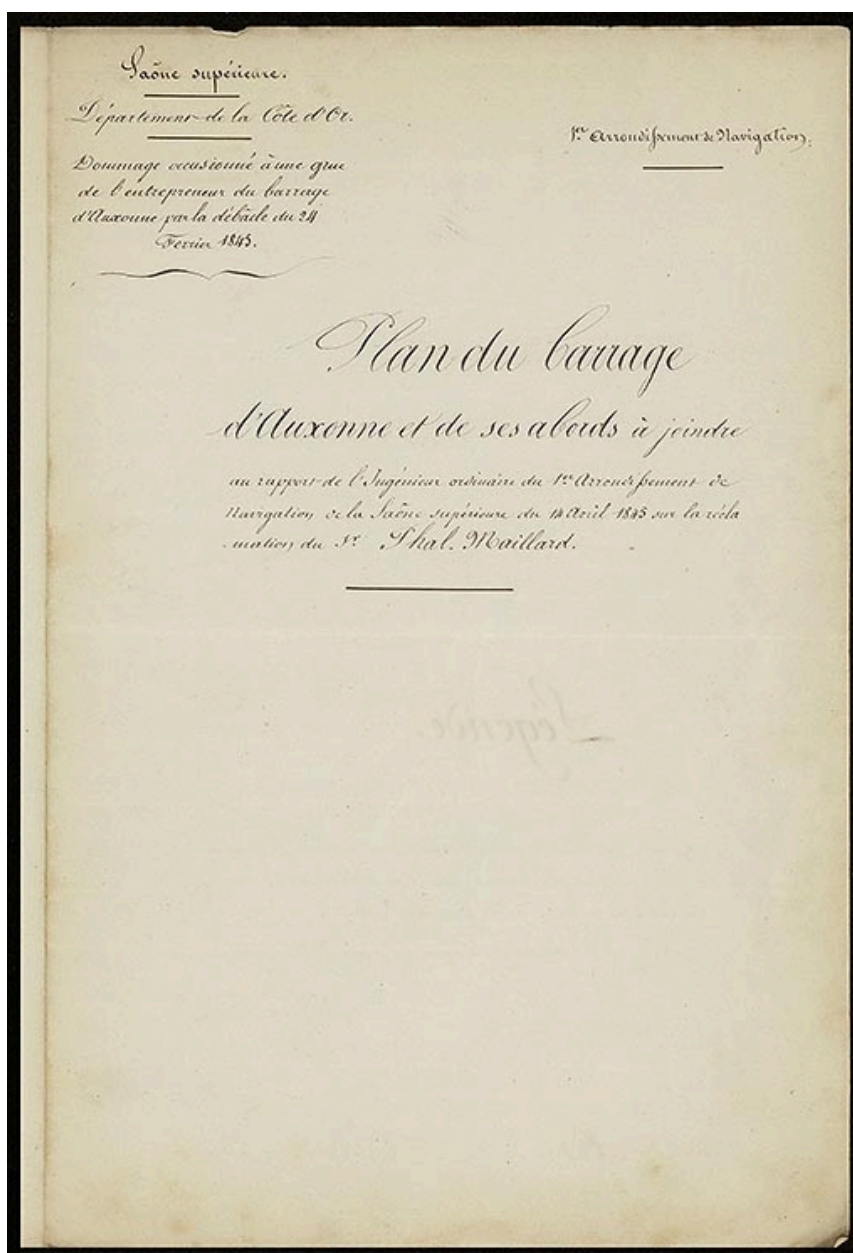 Saône supérieure.
Département de la Côte d'Or.
Dommage occasionné à une grue
de l'entrepreneur du barrage
d'Auxonne par la débâcle du 24
Fevrier 1845.
1er Arrondissement de Navigation.
Plan du barrage
d'Auxonne et de ses abords à joindre
au rapport de l'Ingénieur ordinaire du 1er Arrondissement de
Navigation de la Saône supérieure du 14 Avril 1845 sur la récla
mation du Sr Phal. Maillard.
Légende.